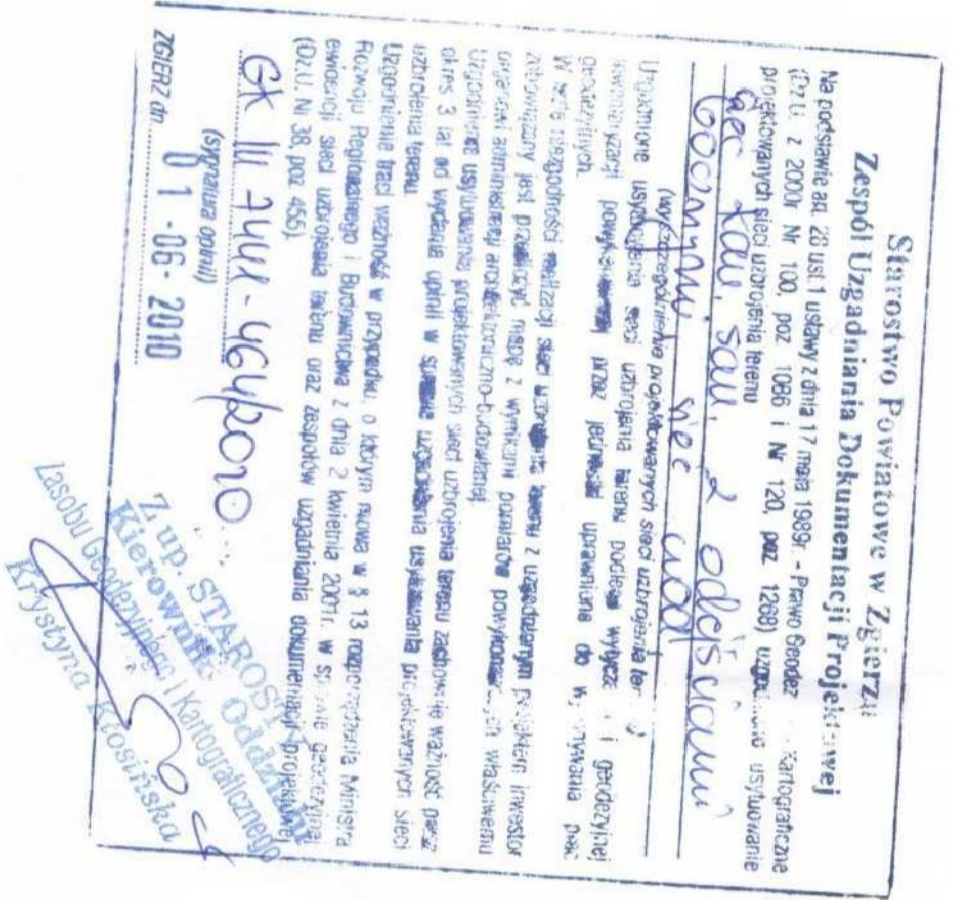 Starostwo Powiatowe w Zgierzu
Zespół Uzgadniania Dokumentacji Projektowej
Na podstawie art. 28 ust. 1 ustawy z dnia 17 maja 1989r. - Prawo Geodez kartograficzne
(Dz.U. z 2000r Nr 100, poz 1086 i Nr 120, poz 1268) usytuowanie
projektowanych sieci uzbrojenia terenu
sieć kan. san. z odejściami
bocznymi, sieć wod
(wyszczególnienie projektowanych sieci uzbrojenia ter
Uzgodnione usytuowanie sieci uzbrojenia terenu podlega wytycz i geodezyjnej
inwentaryzacji powykonawczej przez jednostki uprawnione do wykonywania prac
geodezyjnych.
W razie niezgodności realizacji sieci uzbrojenia terenu z uzgodnionym projektem inwestor
zobowiązany jest przedłożyć mapę z wynikami pomiarów powykonawczych właściwemu
organowi administracji architektoniczno-budowlanej.
Uzgodnienie usytuowania projektowanych sieci uzbrojenia terenu zachowuje ważność przez
okres 3 lat od wydania opinii w sprawie uzgodnienia usytuowania projektowanych sieci
uzbrojenia terenu.
Uzgodnienie traci ważność w przypadku, o którym mowa w § 13 rozporządzenia Ministra
Rozwoju Regionalnego i Budownictwa z dnia 2 kwietnia 2001r. w sprawie geodezyjnej
ewidencji sieci uzbrojenia terenu oraz zespołów uzgadniania dokumentacji projektowej
(Dz.U. Nr 38, poz 455).
GK III 7441-464/2010
(sygnatura opinii)
ZGIERZ dn. 01-06-2010
Z up. STAROSTY
Kierownik Oddziału
Zasobu Geodezyjnego i Kartograficznego
Krystyna Kłosińska